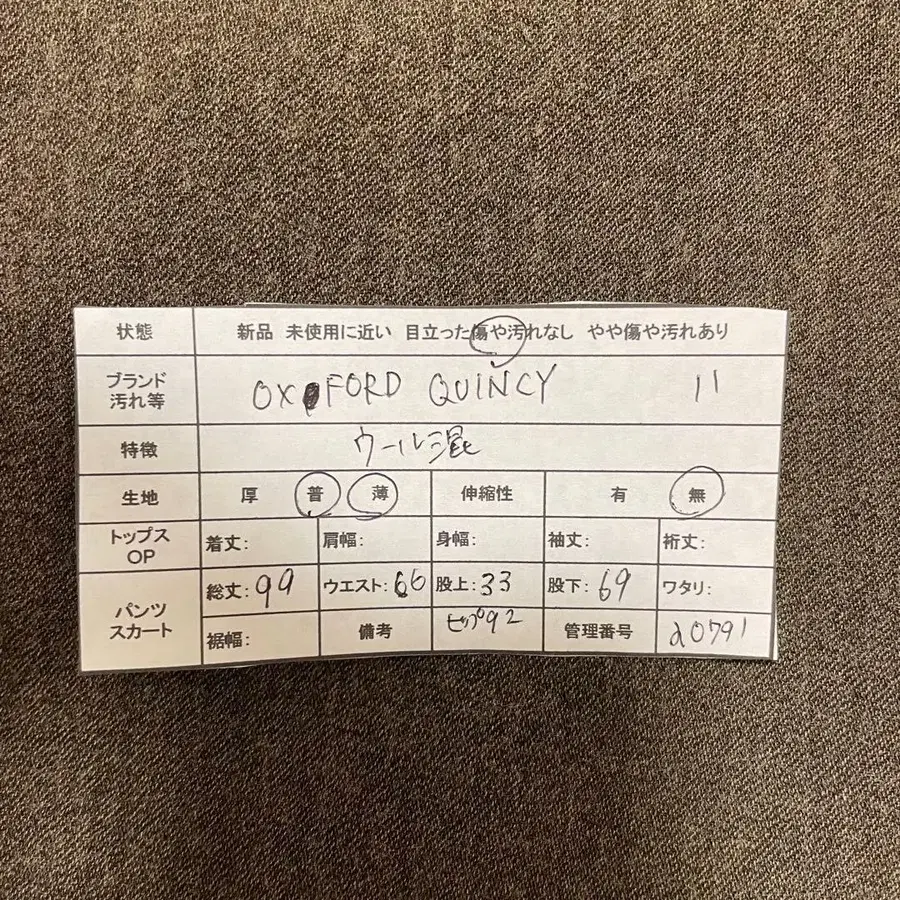 状態 新品 未使用に近い 目立った傷や汚れなし やや傷や汚れあり
ブランド
汚れ等 OXFORD QUINCY 11
特徴 ウール混
生地 厚 普 薄 伸縮性 有 無
トップス
OP 着丈: 肩幅: 身幅: 袖丈: 裄丈:
パンツ
スカート 総丈: 99 ウエスト: 66 股上: 33 股下: 69 ワタリ:
裾幅: 備考 ヒップ92 管理番号 a0791